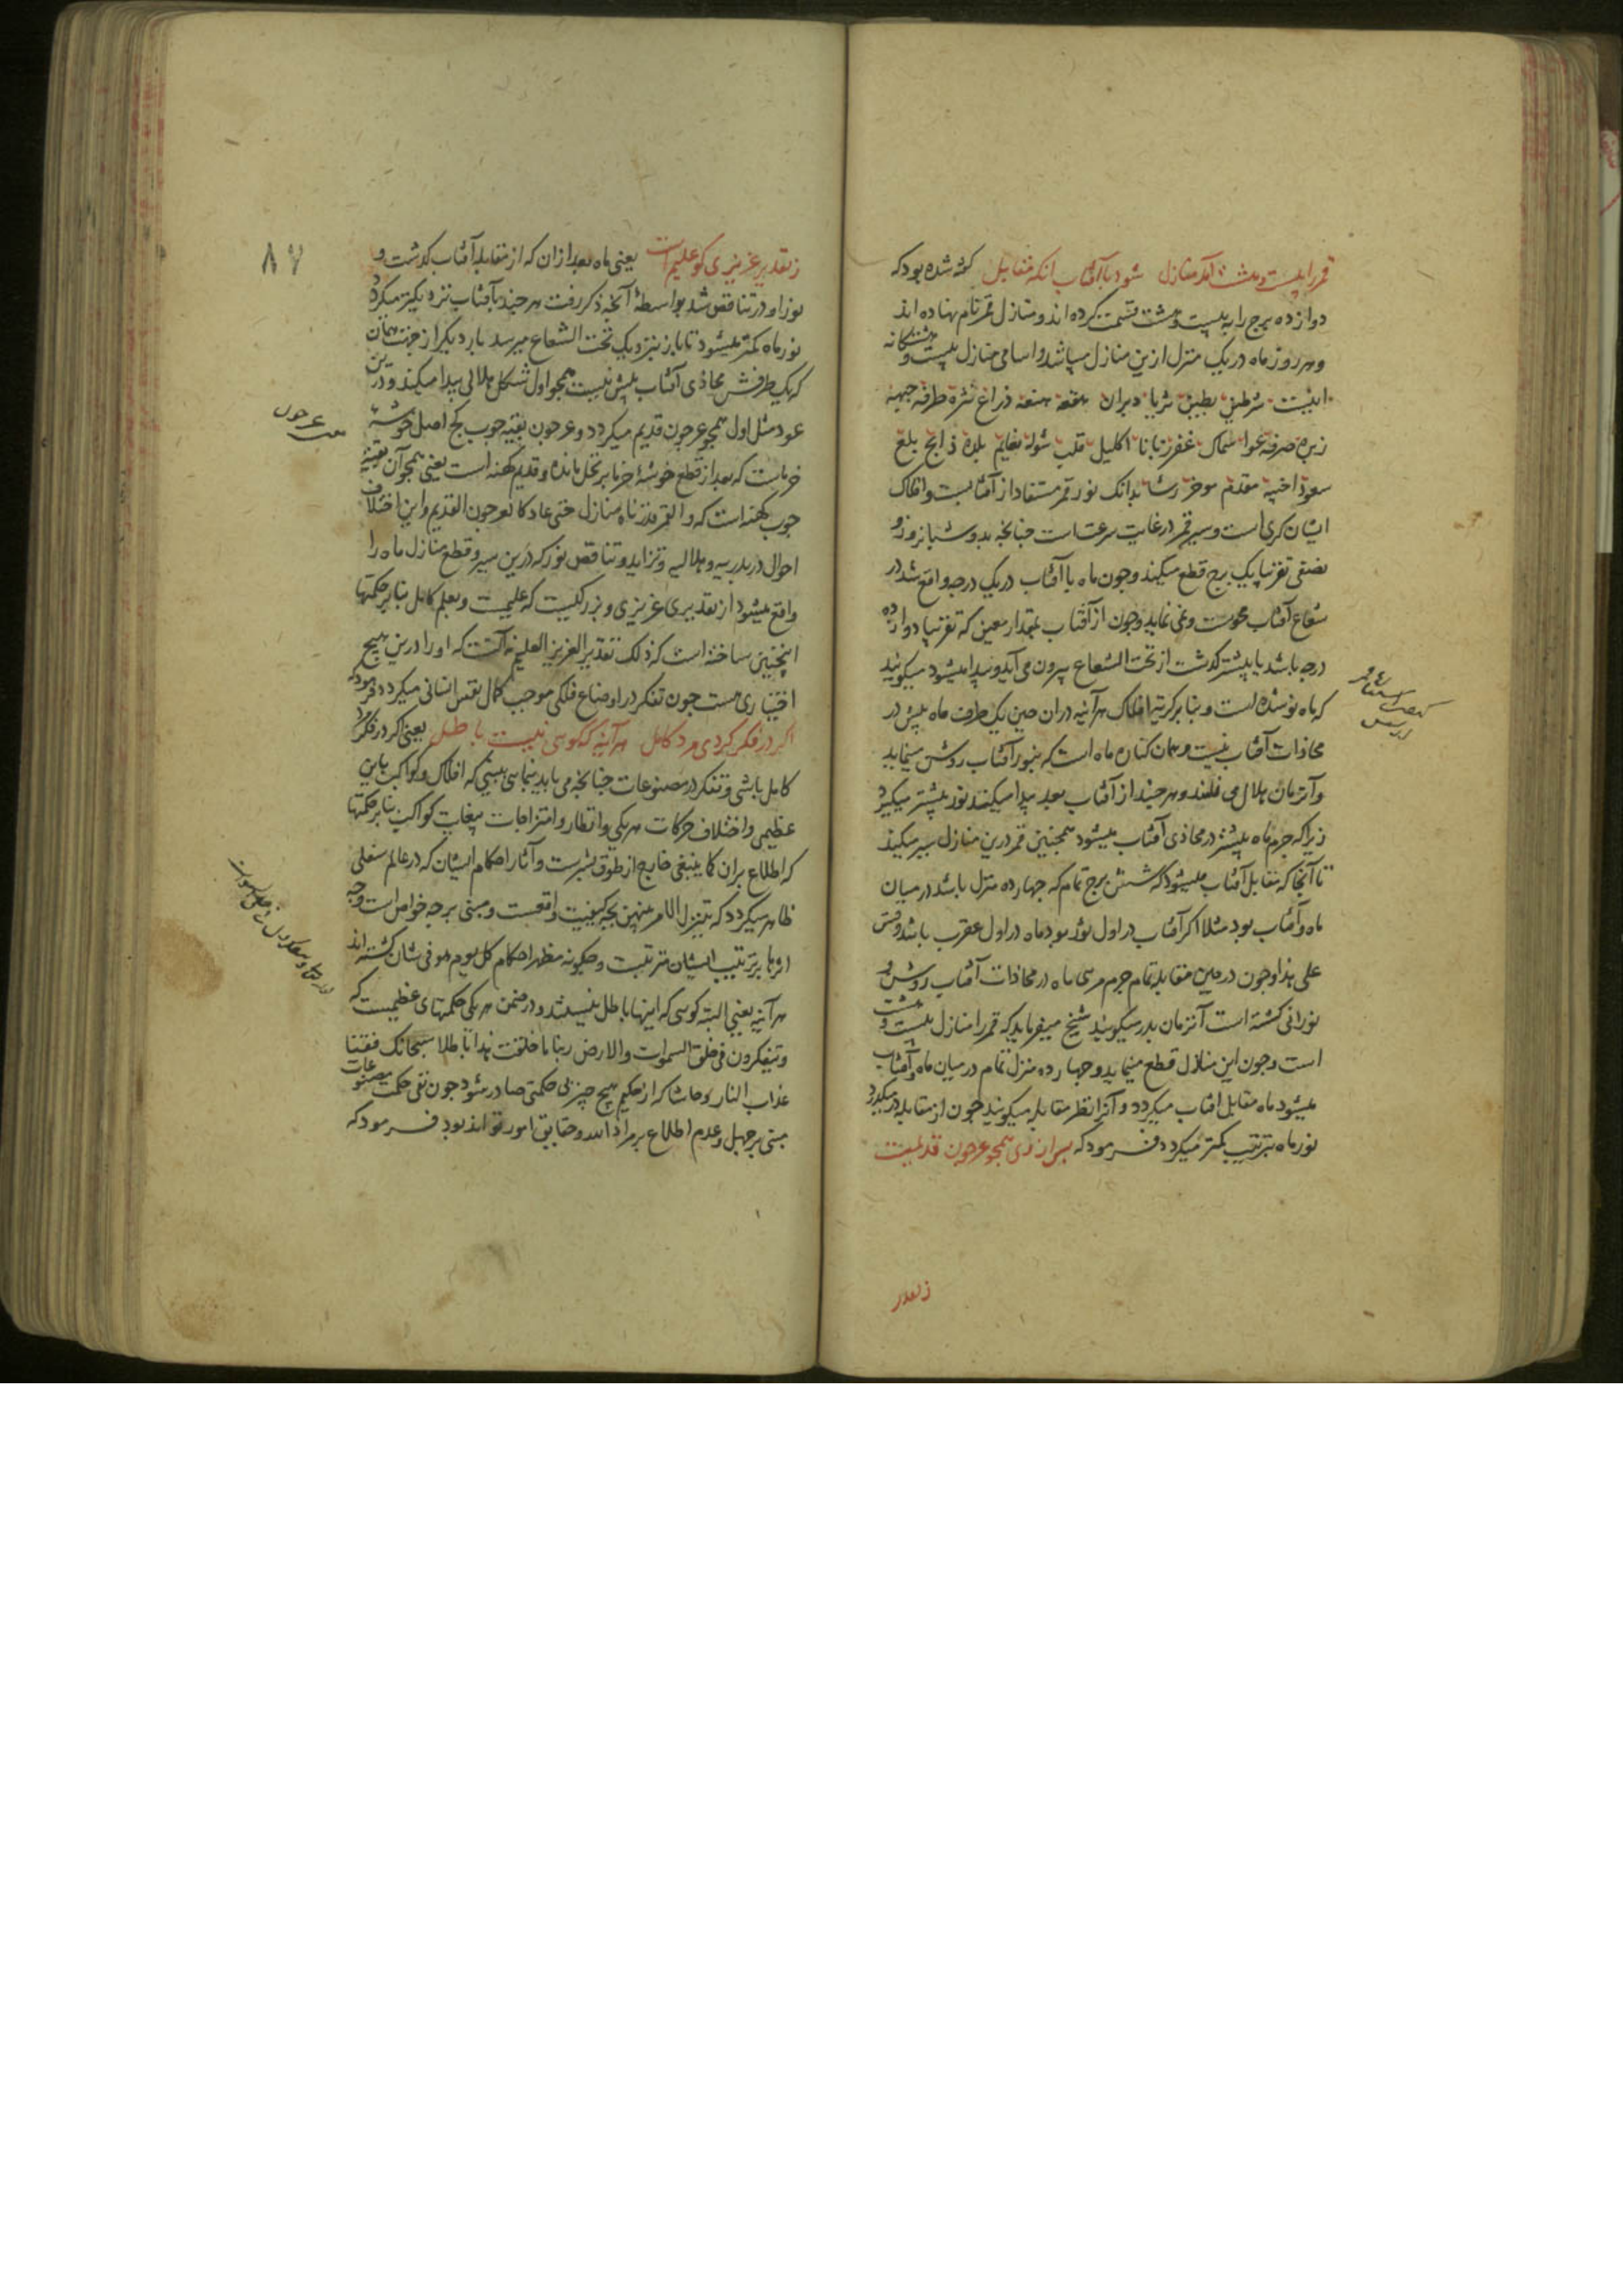 قمر را بیست و هشت آمد منازل شود با آفتاب انکه مقابل کفته شده بود که
دوازده برج را به بیست و هشت قسمت کرده اند و منازل قمر نام نهاده اند
و هر روز ماه در یک منزل ازین منازل میباشد و اسامی منازل بیست و هشتکانه
اینست شرطین بطین ثریا دبران هقعه هنعه ذراع نثره طرفه جبهه
زبره صرفه عوا سماک غفر زبانا اکلیل قلب شوله نعایم بلده ذابح بلع
سعود اخبیه مقدم موخر رشا بدانک نور قمر مستفاد از آفتابست و افلاک
ایشان کری است و سیر قمر در غایت سرعتست چنانچه بدو شبانروز و
نصفی تقریبا یک برج قطع میکند و چون ماه با آفتاب در یک درجه واقع شد در
شعاع آفتاب محوست و نمی نماید و چون از آفتاب بمقدار معین که تقریبا دوازده
درجه باشد یا بیشتر کذشت از تحت الشعاع بیرون می آید و پیدا میشود میکویند
که ماه نو شده است و بنا بر کریة افلاک هر آینه در ان حین یک طرف ماه بیش در
محاذات آفتاب نیست و همان کناره ماه است که بنور آفتاب روشن مینماید
و آنزمان هلال می خوانند و هر چند از آفتاب بعد پیدا میکند نور بیشتر میکیرد
زیرا که جرم ماه بیشتر در محاذی آفتاب میشود همچنین قمر درین منازل سیر میکند
تا آنجا که مقابل آفتاب میشود که شش برج تمام که چهارده منزل باشد در میان
ماه و آفتاب بود مثلا اکر آفتاب در اول ثور بود ماه در اول عقرب باشد وقس
علی هذا و چون در حین مقابله تمام جرم مریی ماه در محاذات آفتاب روشن و
نورانی کشته است آنزمان بدر میکویند شیخ میفرماید که قمر را منازل بیست و هشت
است و چون این منازل قطع مینماید و چهارده منزل تمام در میان ماه و آفتاب
میشود ماه مقابل افتاب میکردد و آنرا نظر مقابله میکویند چون از مقابله در میکذرد
نور ماه بترتیب کمتر میکردد فرمود که پس از وی همچو عرجون قدیمست
ز تقدیر
ز تقدیر عزیزی کو علیم است یعنی ماه بعد از ان که از مقابله آفتاب کذشت و
نور او در تناقص شد بواسطهٔ آنچه ذکر رفت هر چند بآفتاب نزدیکتر میکردد
نور ماه کمتر میشود تا باز نزدیک تحت الشعاع میرسد بار دیکر از جهت همان
که یک طرفش محاذی آفتاب بیش نیست همچو اول شکل هلالی پیدا میکند و درین
عود مثل اول همچو عرجون قدیم میکردد و عرجون بقیه چوب کج اصل خوشه
خرماست که بعد از قطع خوشهٔ خرما بر نخل مانده و قدیم کهنه است یعنی همچو آن بقیهٔ
چوب کهنه است که والقمر قدرناه منازل حتی عاد کالعرجون القدیم و این اختلاف
احوال در بدریه و هلالیه و تزاید و تناقص نور که درین سیر و قطع منازل ماه را
واقع میشود از تقدیری عزیزی و بزرکیست که علیمست و بعلم کامل بنا بر حکمتها
اینچنین ساخته است که ذلک تقدیر العزیز العلیم نه آنست که او را درین هیچ
اختیاری هست چون تفکر در اوضاع فلکی موجب کمال نفس انسانی میکردد فرمود که
اکر در فکر کردی مرد کامل هر آینه که کویی نیست باطل یعنی اکر در فکر مرد
کامل باشی و تفکر در مصنوعات چنانچه می باید بنمایی ببینی که افلاک و کواکب باین
عظیمی و اختلاف حرکات هر یکی و انظار و امتزاجات کواکب بنا بر حکمتها
که اطلاع بران کما ینبغی خارج از طوق بشرست و آثار احکام ایشان که در عالم سفلی
ظاهر میکردد که یتنزل الامر بینهن بچه کیفیت واقعست و مبنی بر چه خواص است و چه
اثرها بر ترتیب ایشان مترتبست و چکونه مظهر احکام کل یوم هو فی شان کشته اند
هر آینه یعنی البته کویی که اینها باطل نیستند و در ضمن هر یکی حکمتهای عظیمست که
و یتفکرون فی خلق السموات والارض ربنا ما خلقت هذا باطلا سبحانک فقنا
عذاب النار و حاشا که از حکیم هیچ چیز بی حکمتی صادر شود چون نفی حکمت مصنوعات
مبنی بر جهل و عدم اطلاع بر مراد الله و حقایق امور تواند بود فرمود که